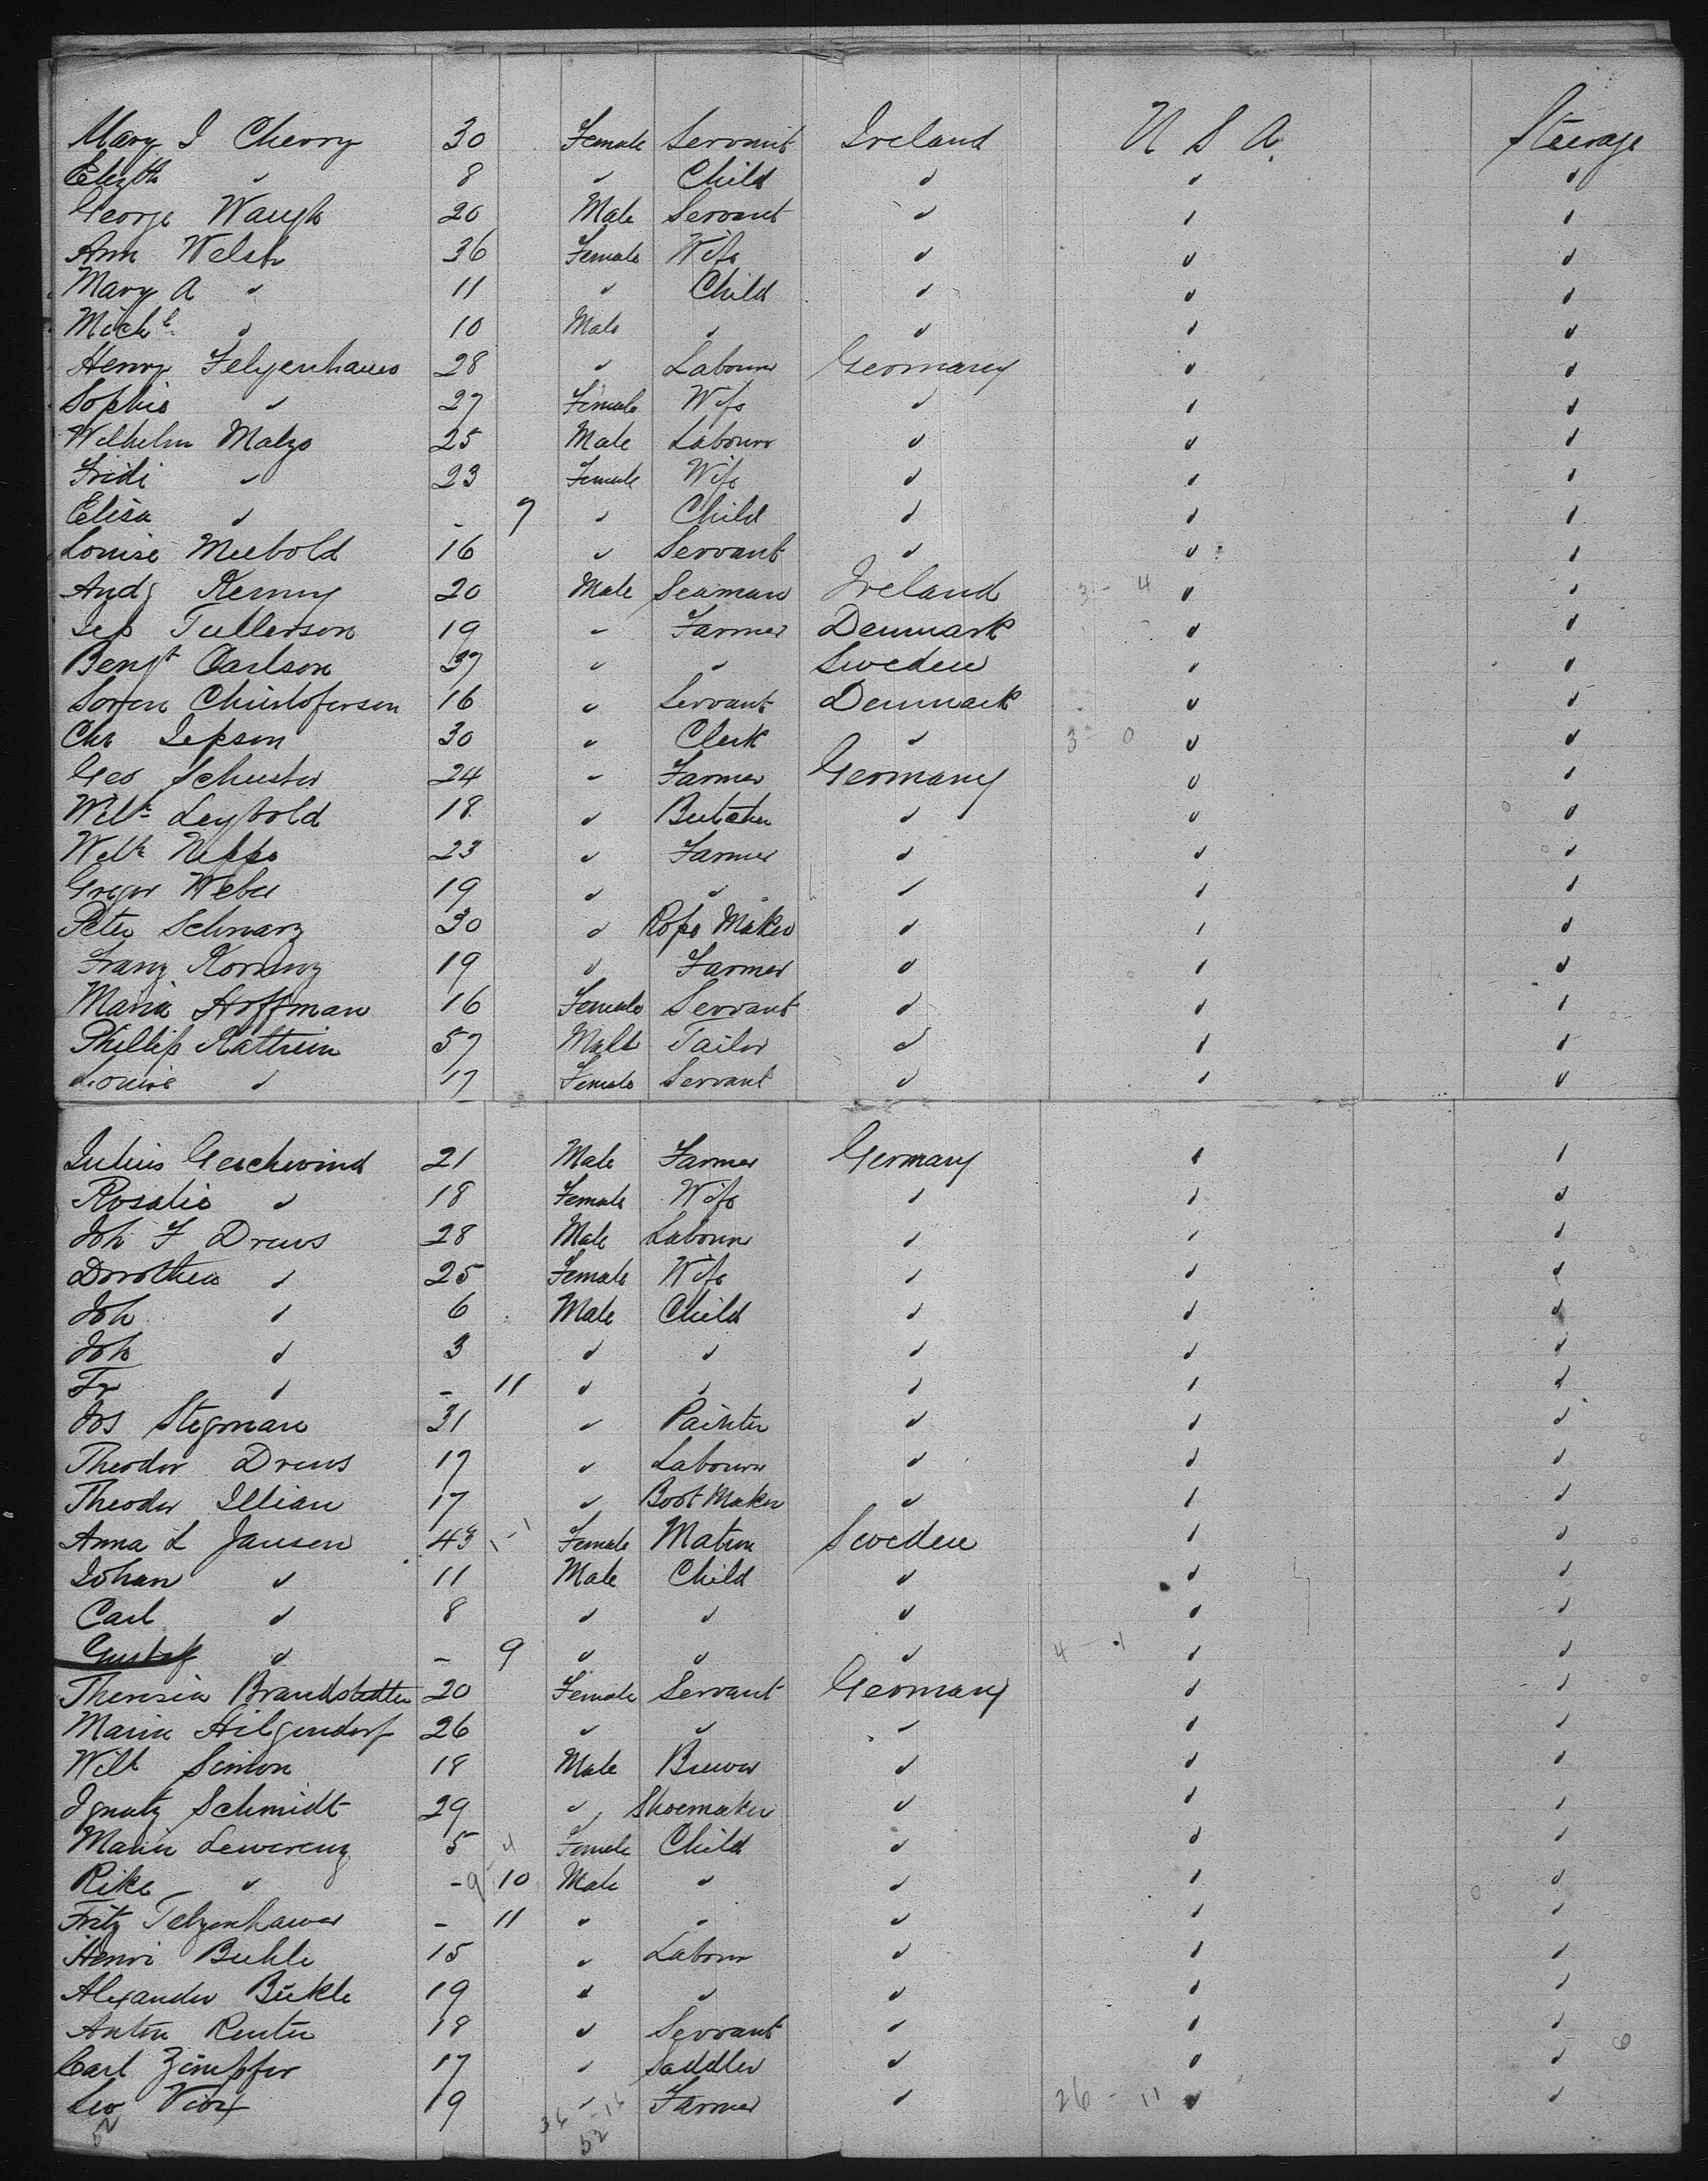 Mary J Cherry 30 Female Servant Ireland U S A. Steerage
Elizth " 8 " Child " " "
George Waugh 20 Male Servant " " "
Ann Welsh 36 Female Wife " " "
Mary A " 11 " Child " " "
Michl " 10 Male " " " "
Henry 28 " Labourer Germany " "
Sophie " 27 Female Wife " " "
Wilhelm 25 Male Labourer " " "
Fridi " 23 Female Wife " " "
Elisa " - 7 " Child " " "
Louise Meebold 16 " Servant " " "
Andr Kenny 20 Male Seaman Ireland 3 - 4 " "
Jes Tullerson 19 " Farmer Denmark " "
Bengt Carlson 37 " " Sweden " "
Soren Christofersen 16 " Servant Denmark " "
Chr Jepson 30 " Clerk " 3 - 0 " "
Geo Schuster 24 " Farmer Germany " "
Wilh Leybold 18 " Butcher " " "
Wilh 23 " Farmer " " "
Gregor Weber 19 " " " " "
Peter Schwarz 30 " Rope Maker " " "
Franz 19 " Farmer " " "
Maria Hoffman 16 Female Servant " " "
Phillip Kathrein 57 Male Tailor " " "
Louise " 17 Female Servant " " "
Julius Geschwind 21 Male Farmer Germany " "
Rosalie " 18 Female Wife " " "
Joh F Drews 28 Male Labourer " " "
Dorothea " 25 Female Wife " " "
Joh " 6 Male Child " " "
Joh " 3 " " " " "
Fr " - 11 " " " " "
Jos Stegman 31 " Painter " " "
Theodor Drews 17 " Labourer " " "
Theodor Illian 17 " Boot Maker " " "
Anna L Jansen 43 Female Matron Sweden " "
Johan " 11 Male Child " " "
Carl " 8 " " " " "
Gustaf " - 9 " " " 4 - 1 " "
Theresia Brandstedter 20 Female Servant Germany " "
Maria Hilgendorf 26 " " " " "
Wilh Simon 18 Male Brewer " " "
Ignatz Schmidt 29 " Shoemaker " " "
Maria Lewerenz 5 Female Child " " "
Rike " - 10 Male " " " "
Fritz - 11 " " " " "
Henri Buhle 15 " Labourer " " "
Alexander Bükle 19 " " " " "
Anton Reuter 18 " Servant " " "
Carl Zimpfer 17 " Saddler " " "
Leo Viox 19 " Farmer " 26 - 11 " "
52